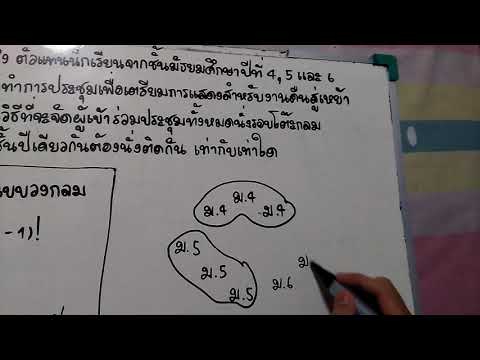 ตัวแทนนักเรียนจากชั้นมัธยมศึกษาปีที่ 4, 5 และ 6
ทำการประชุมเพื่อเตรียมการแสดงสำหรับงานคืนสู่เหย้า
วิธีที่จะจัดผู้เข้าร่วมประชุมทั้งหมดนั่งรอบโต๊ะกลม
ชั้นปีเดียวกันต้องนั่งติดกัน เท่ากับเท่าใด
แบบวงกลม
- 1)!
ม.4 ม.4 ม.4
ม.5
ม.5
ม.5
ม.6
ม